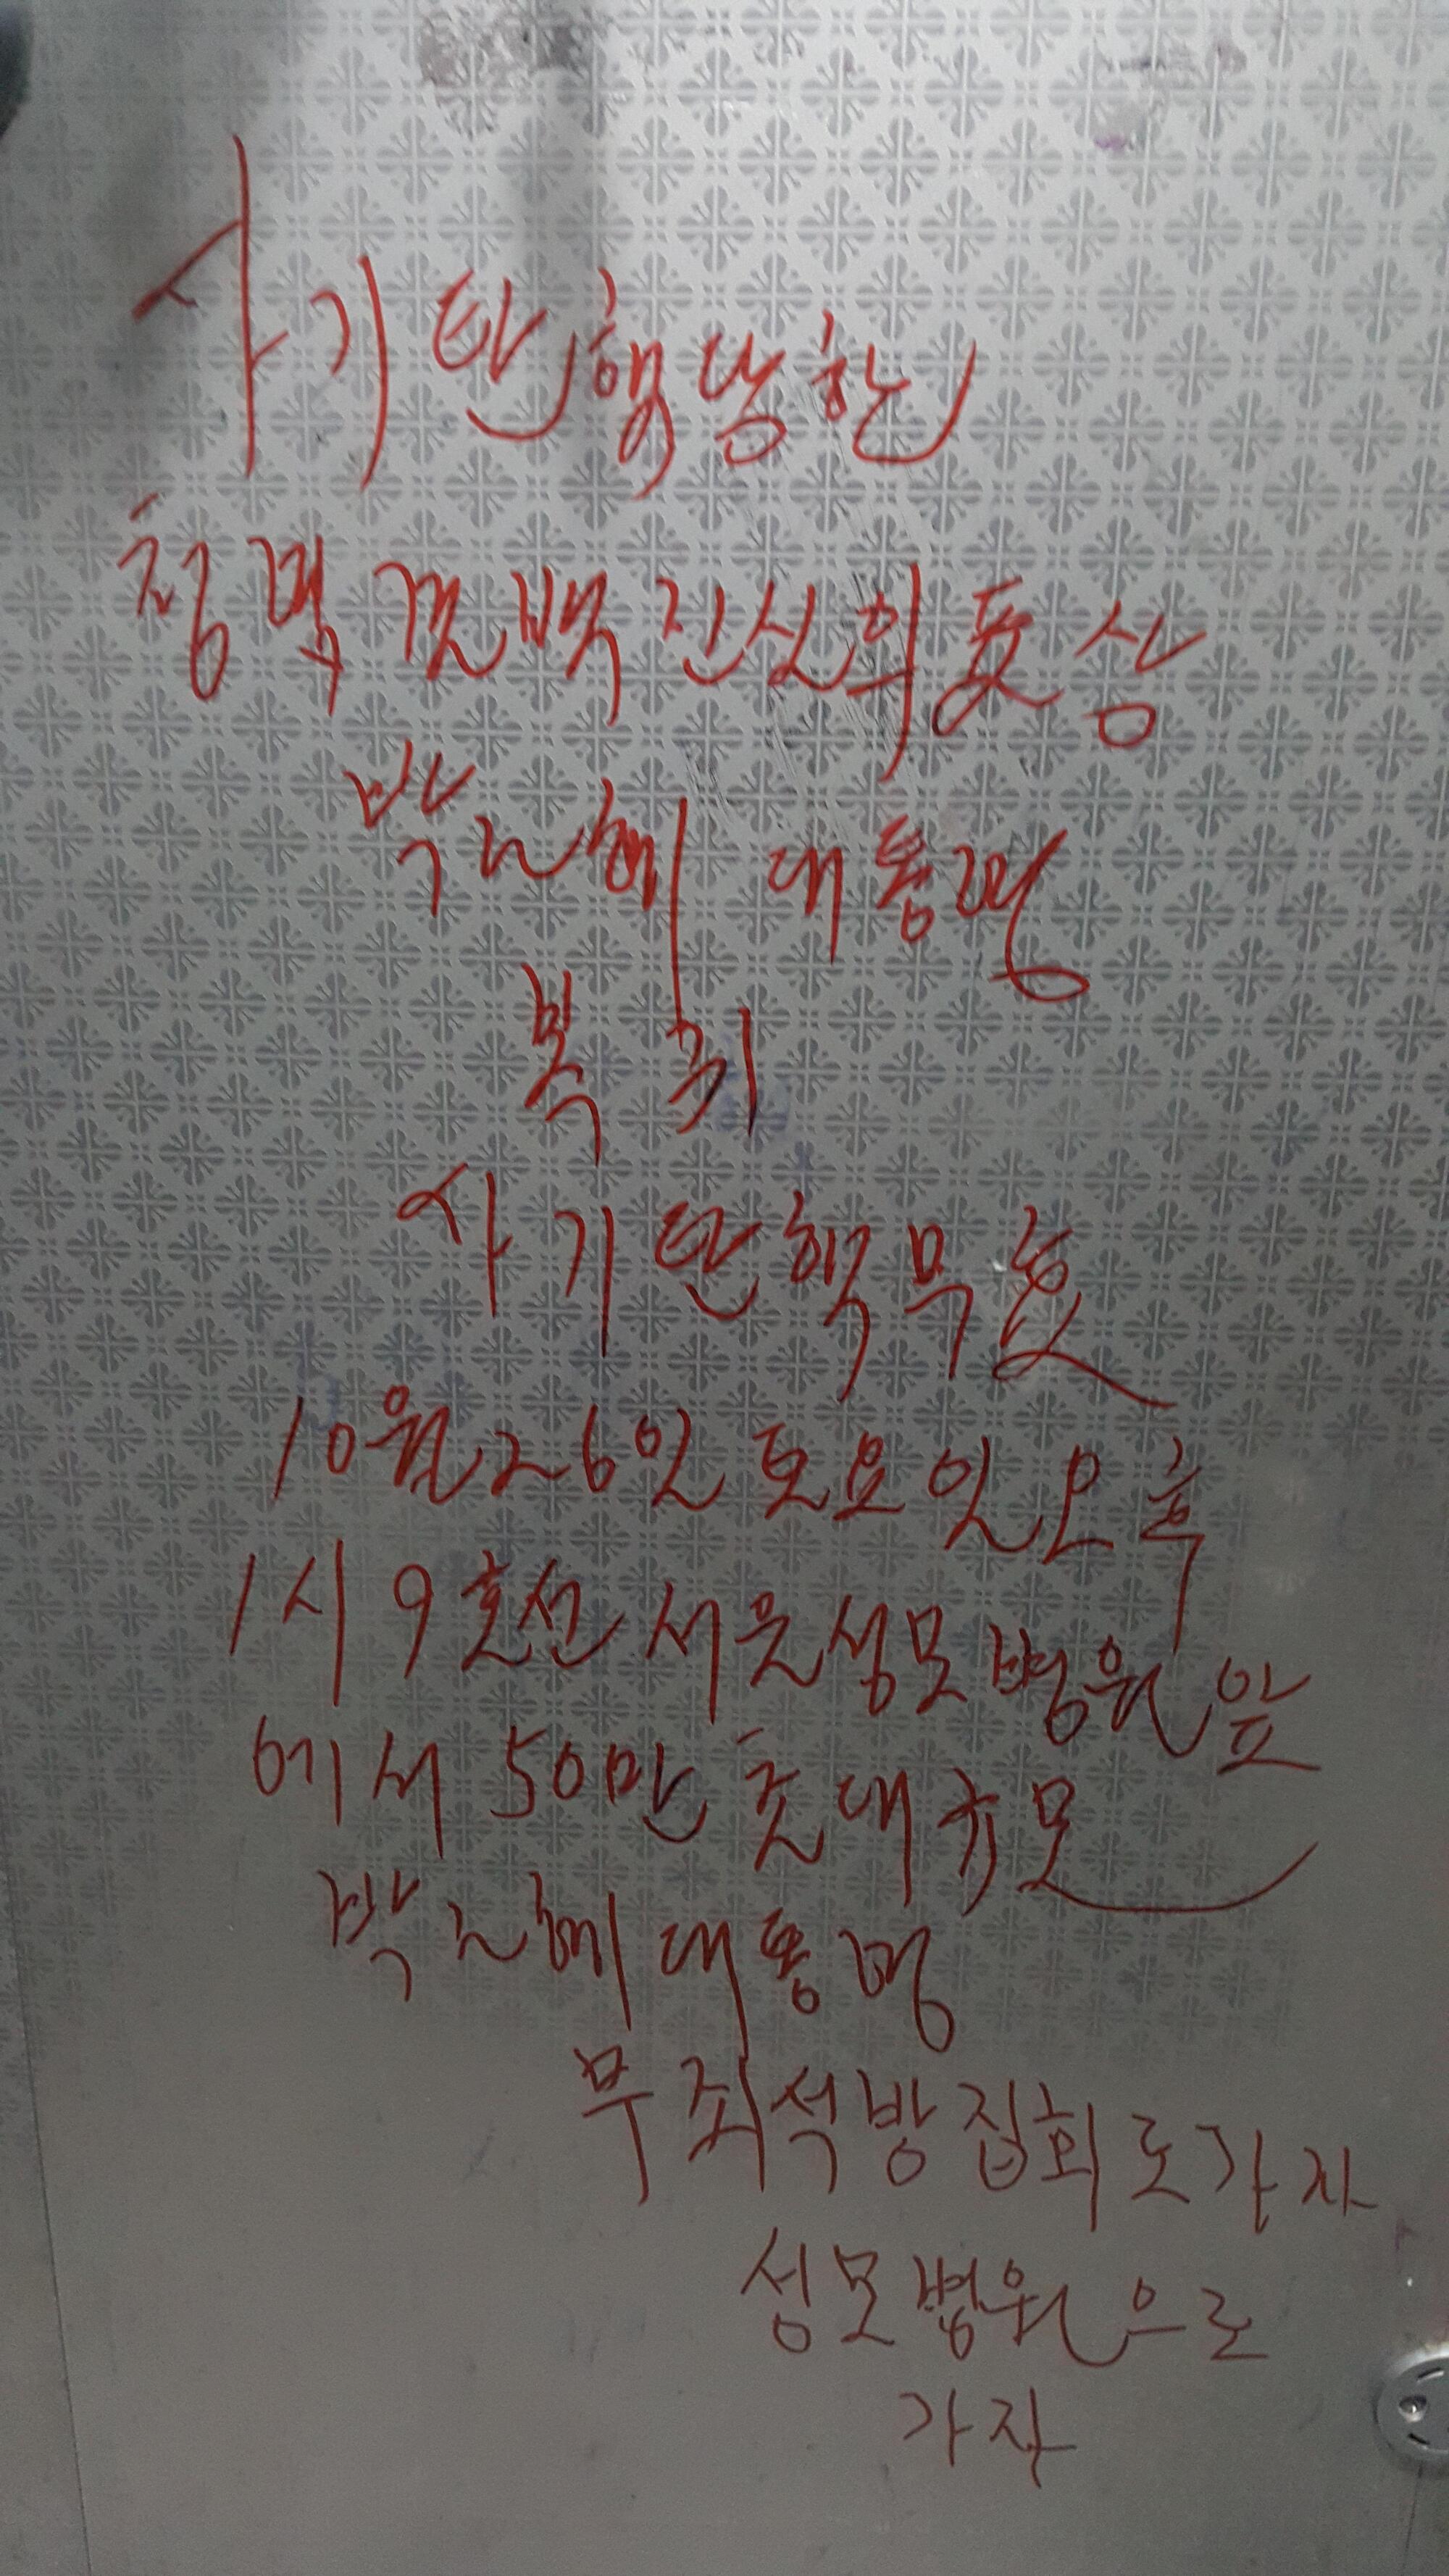 사기탄핵당한
청렴결백진실의표상
박근혜 대통령
복귀
사기탄핵무효
10월26일토요일오후
1시9호선서울성모병원앞
에서50만초대규모
박근혜대통령
무죄석방집회로가자
성모병원으로
가자